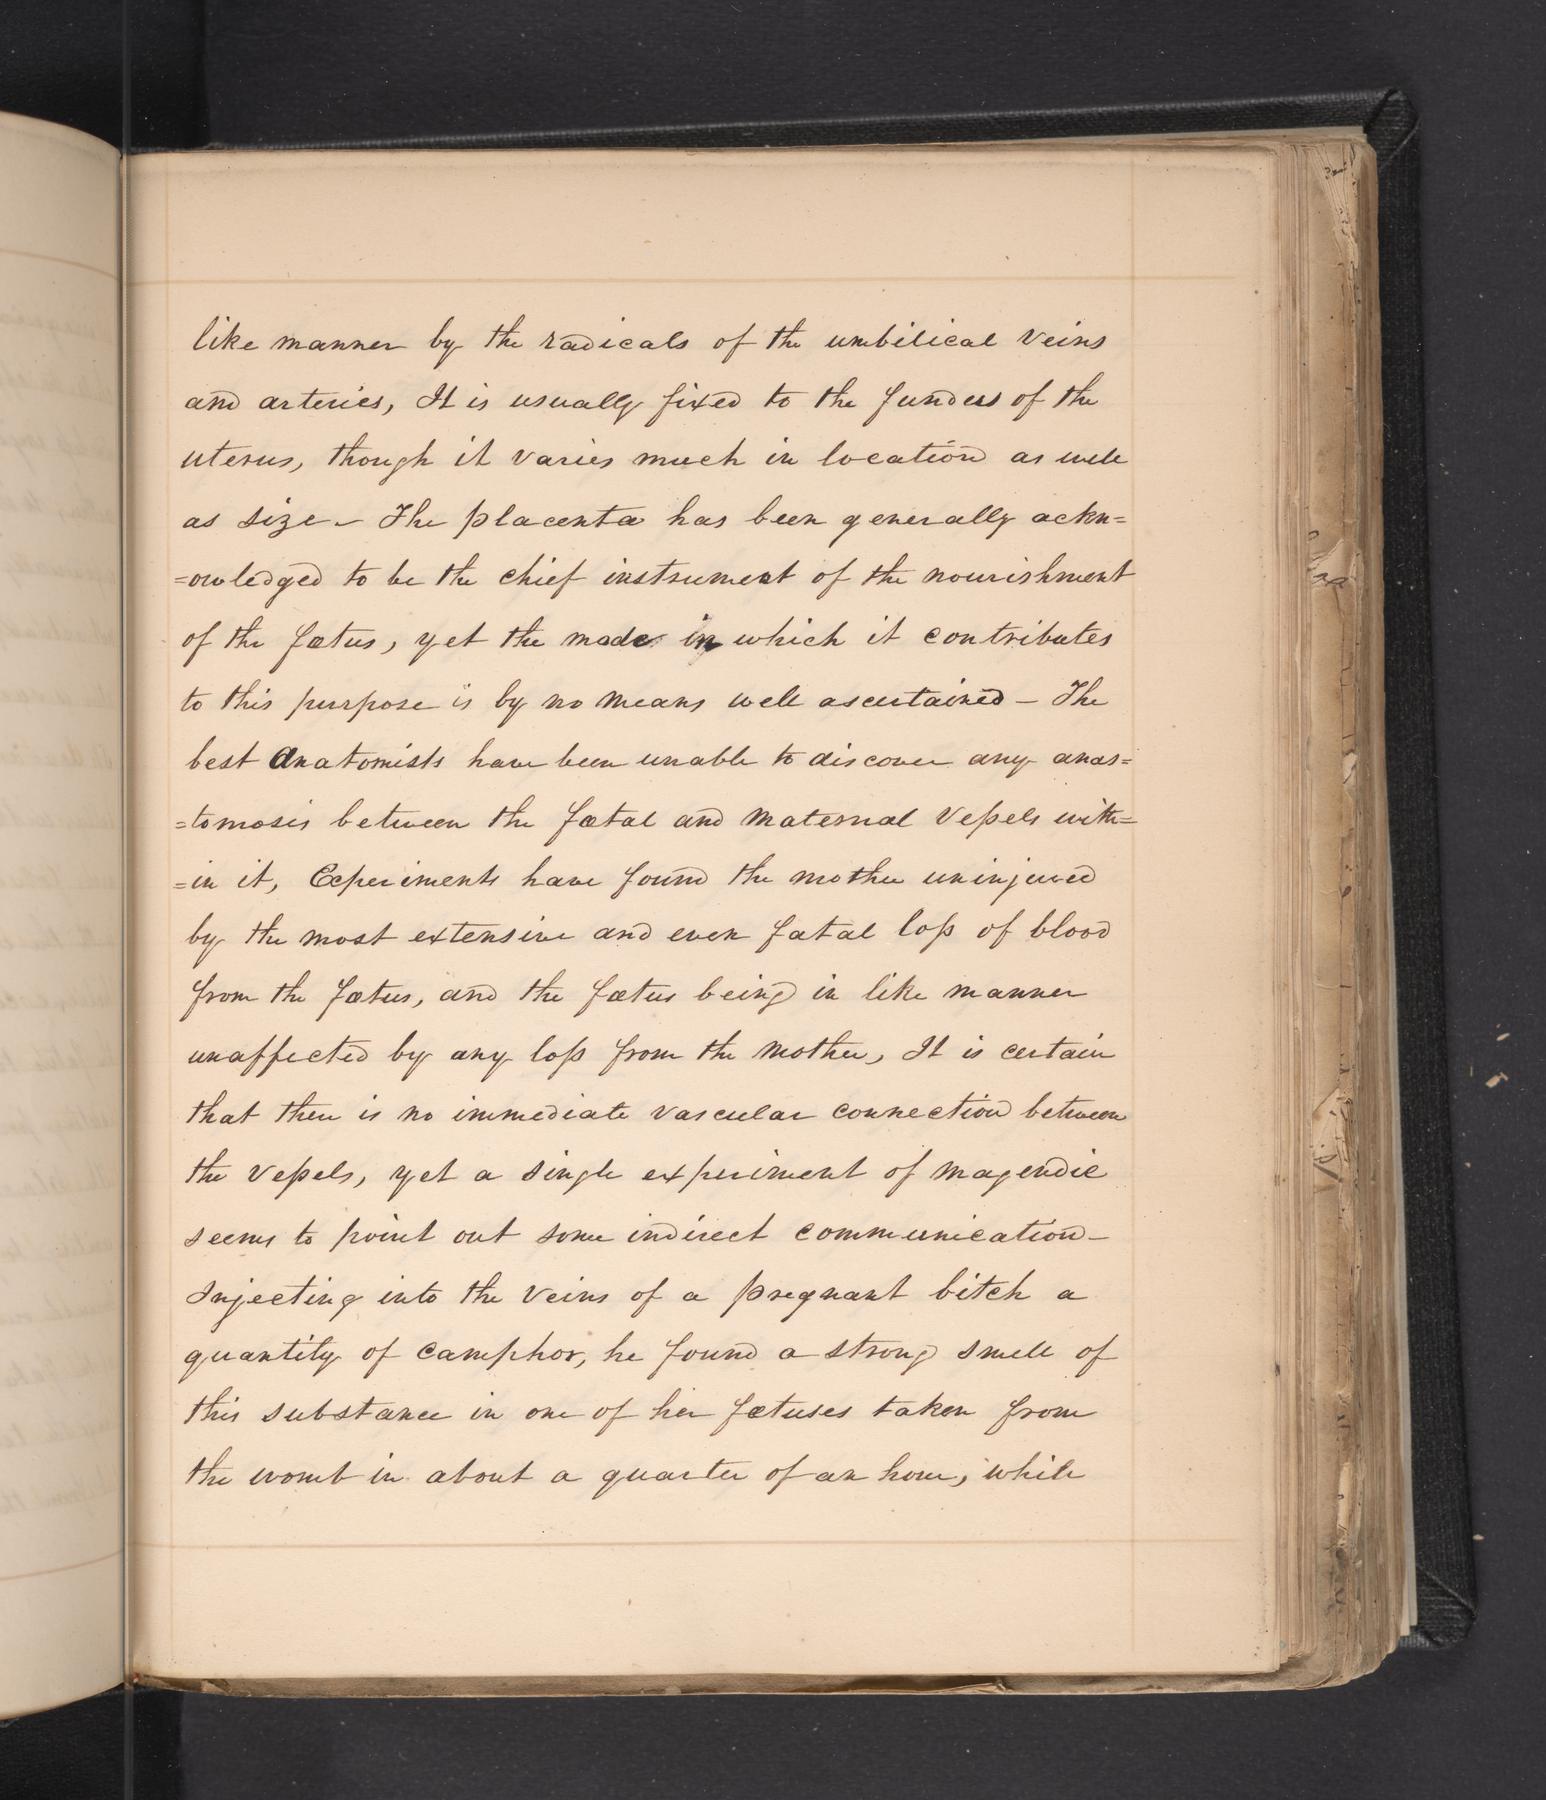 like manner by the radicals of the umbilical veins
and arteries, It is usually fixed to the fundus of the
uterus, though it varies much in location as well
as size – The placenta has been generally ackn=
=owledged to be the chief instrument of the nourishment
of the fœtus, yet the mode in which it contributes
to this purpose is by no means well ascertained – The
best Anatomists have been unable to discover any anas=
=tomosis between the fœtal and maternal vessels with=
=in it, Experiments have found the mother uninjured
by the most extensive and even fatal loss of blood
from the fœtus, and the fœtus being in like manner
unaffected by any loss from the mother, It is certain
that there is no immediate vascular connection between
the vessels, yet a single experiment of magendie
seems to point out some indirect communication –
Injecting into the veins of a pregnant bitch a
quantity of camphor, he found a strong smell of
this substance in one of her fœtuses taken from
the womb in about a quarter of an hour, while